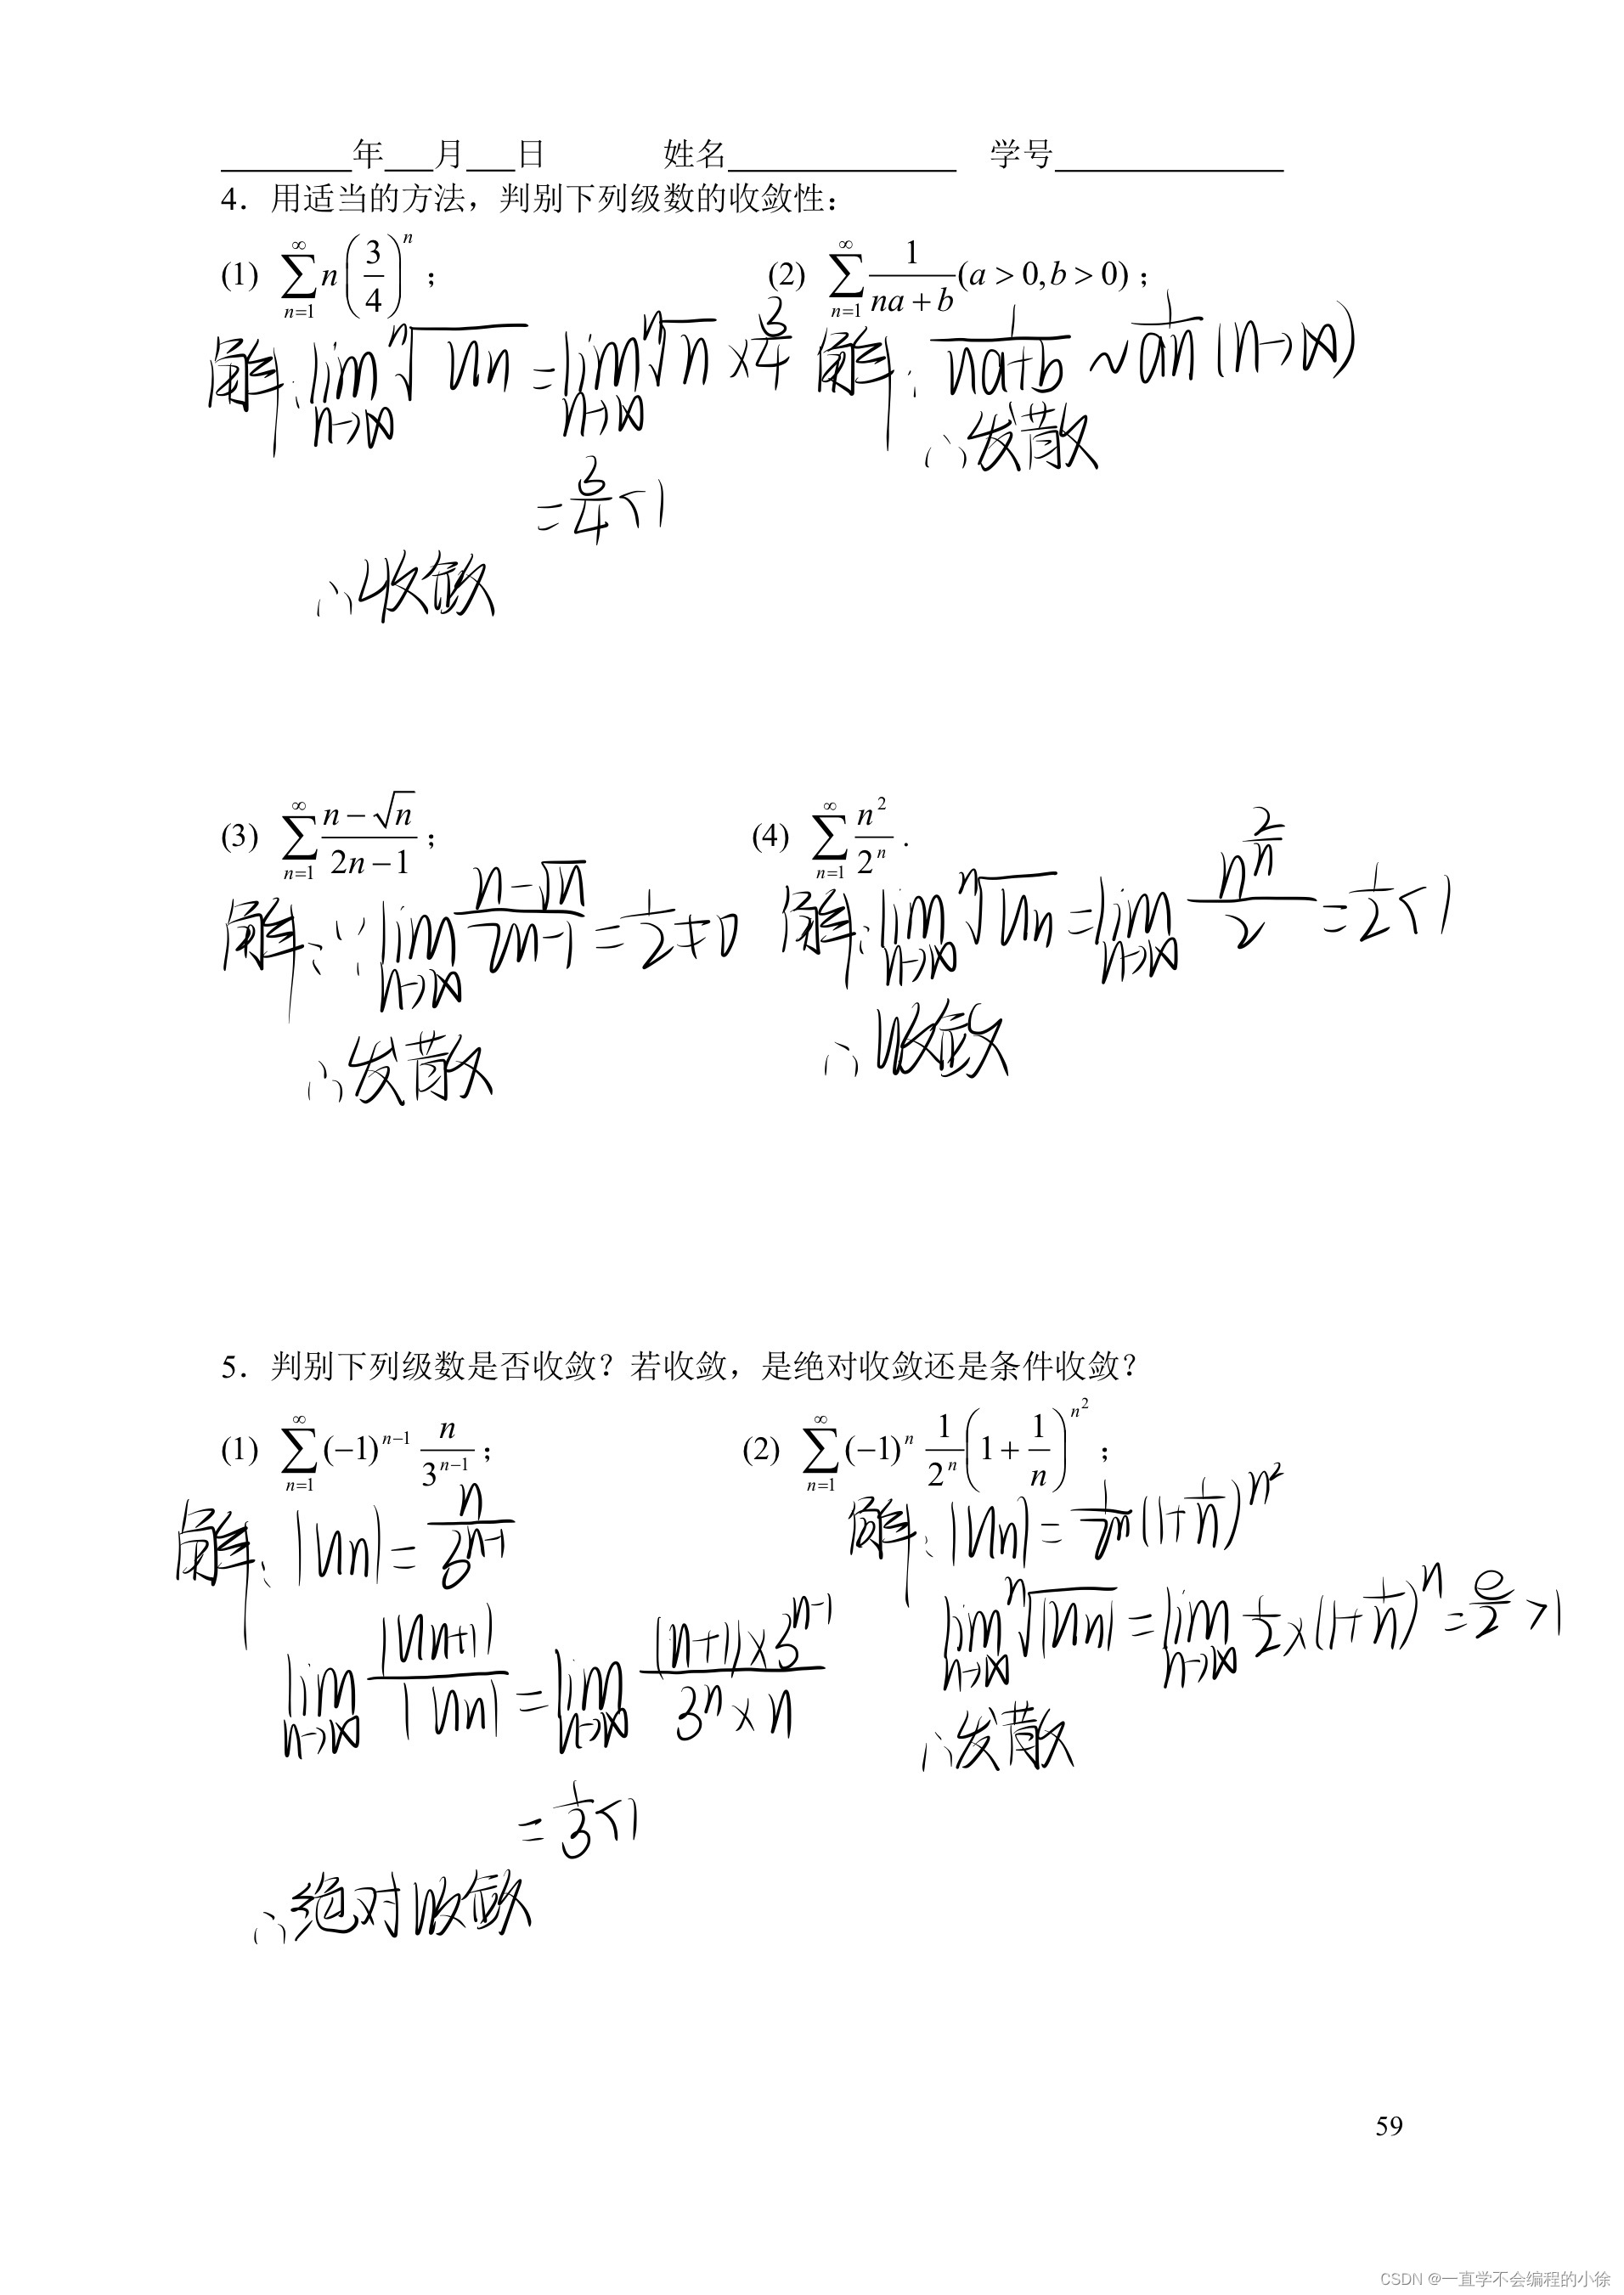 ____年__月__日 姓名________ 学号________
4．用适当的方法，判别下列级数的收敛性：
(1) $\sum_{n=1}^{\infty} n\left(\frac{3}{4}\right)^n$；
(2) $\sum_{n=1}^{\infty} \frac{1}{na+b}(a>0,b>0)$；
解：$\lim_{n\to\infty}\sqrt[n]{u_n}=\lim_{n\to\infty}\sqrt[n]{n}\times\frac{3}{4}$
$=\frac{3}{4}<1$
∴收敛
解：$\frac{1}{na+b}\sim\frac{1}{an}(n\to\infty)$
∴发散
(3) $\sum_{n=1}^{\infty}\frac{n-\sqrt{n}}{2n-1}$；
(4) $\sum_{n=1}^{\infty}\frac{n^2}{2^n}$.
解：∵$\lim_{n\to\infty}\frac{n-\sqrt{n}}{2n-1}=\frac{1}{2}\neq0$
∴发散
解：$\lim_{n\to\infty}\sqrt[n]{u_n}=\lim_{n\to\infty}\frac{n^{\frac{2}{n}}}{2}=\frac{1}{2}<1$
∴收敛
5．判别下列级数是否收敛？若收敛，是绝对收敛还是条件收敛？
(1) $\sum_{n=1}^{\infty}(-1)^{n-1}\frac{n}{3^{n-1}}$；
(2) $\sum_{n=1}^{\infty}(-1)^n\frac{1}{2^n}\left(1+\frac{1}{n}\right)^{n^2}$；
解：$|u_n|=\frac{n}{3^{n-1}}$
$\lim_{n\to\infty}\frac{|u_{n+1}|}{|u_n|}=\lim_{n\to\infty}\frac{(n+1)\times3^{n-1}}{3^n\times n}$
$=\frac{1}{3}<1$
∴绝对收敛
解：$|u_n|=\frac{1}{2^n}(1+\frac{1}{n})^{n^2}$
$\lim_{n\to\infty}\sqrt[n]{|u_n|}=\lim_{n\to\infty}\frac{1}{2}\times(1+\frac{1}{n})^n=\frac{e}{2}>1$
∴发散
59
CSDN @一直学不会编程的小徐